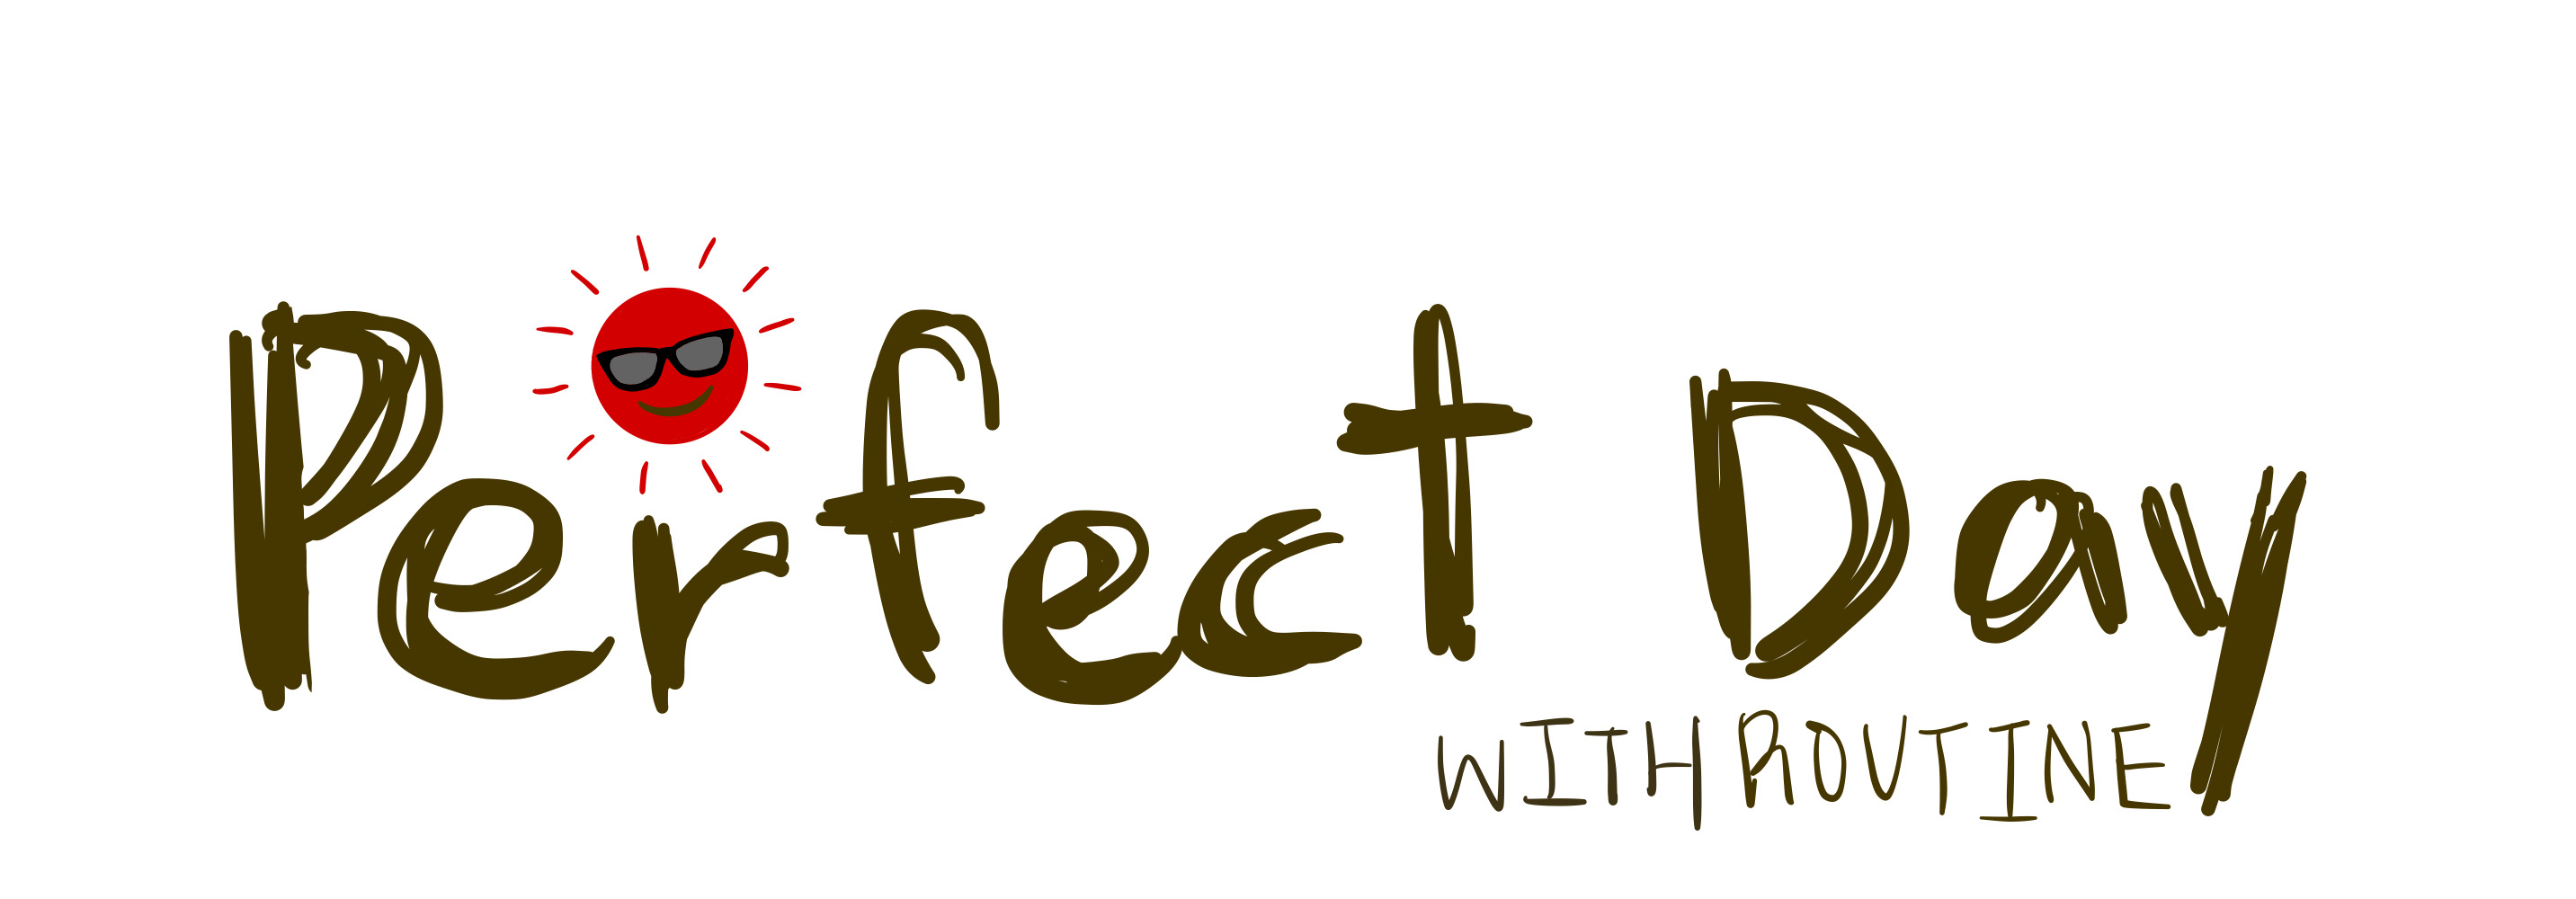 Perfect Day
WITH ROUTINE